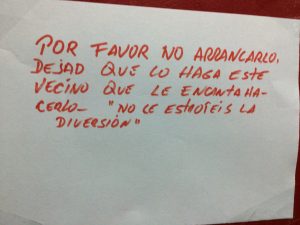 POR FAVOR NO ARRANCARLO,
DEJAD QUE LO HAGA ESTE
VECINO QUE LE ENCANTA HA-
CERLO- "NO LE ESTROPEIS LA
DIVERSIÓN"